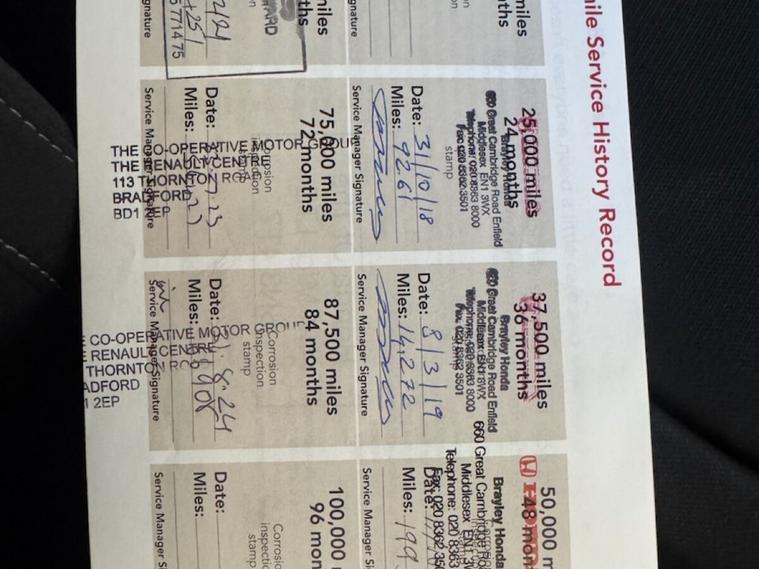 mile Service History Record
miles
ths
Service Manager Signature
25,000 miles
24 months
Brayley Honda
660 Great Cambridge Road Enfield
Middlesex EN1 3WX
Telephone: 020 8363 8000
Fax: 020 8362 3501
stamp
Date: 31/10/18
Miles: 9261
Service Manager Signature
37,500 miles
36 months
Brayley Honda
660 Great Cambridge Road Enfield
Middlesex EN1 3WX
Telephone: 020 8363 8000
Fax: 020 8362 3501
Date: 8/3/19
Miles: 14,272
Service Manager Signature
50,000 m
48 mon
Brayley Honda
660 Great Cambridge
Middlesex EN1 3W
Telephone: 020 8363
Fax: 020 8362 350
Date:
Miles: 199
Service Manager Si
miles
ths
ARD
5771475
gnature
75,000 miles
72 months
Corrosion
inspection
Date:
Miles:
Service Manager Signature
THE CO-OPERATIVE MOTOR GROUP
THE RENAULT CENTRE
113 THORNTO
BRADFORD
BD1 2EP
87,500 miles
84 months
Corrosion
inspection
stamp
Date:
Miles:
Service Manager Signature
CO-OPERATIVE MOTOR GROUP
RENAULT CENTRE
THORNTO
ADFORD
1 2EP
100,000
96 mon
Corrosi
inspecti
stamp
Date:
Miles:
Service Manager Si